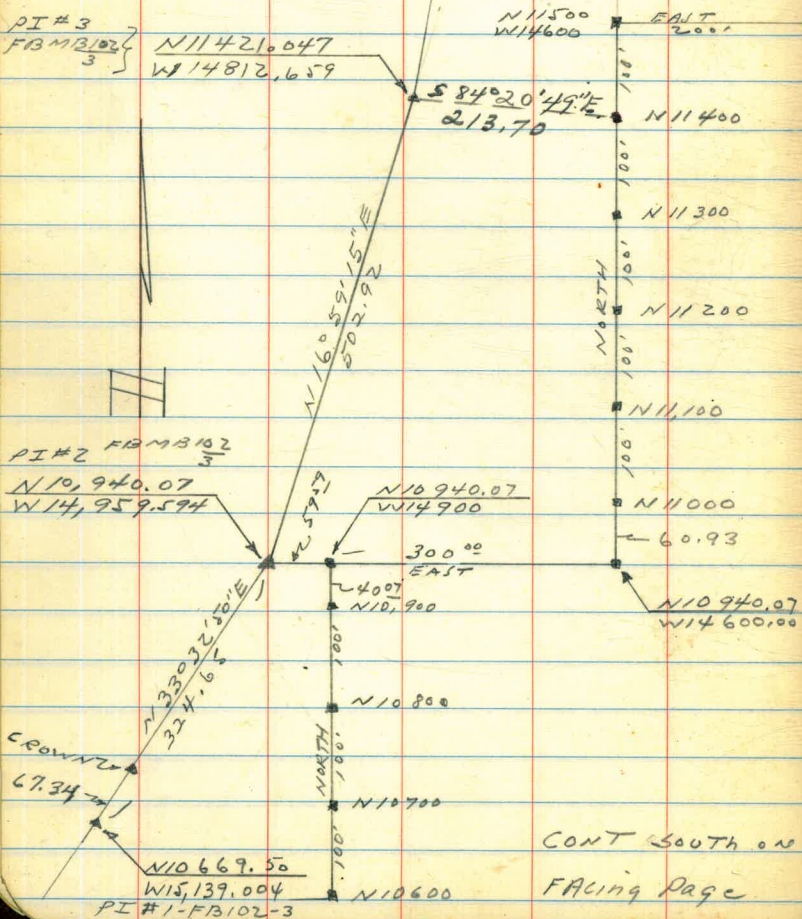 PI #3
FBMB102
3
N11421.047
W14812.659
N11500
W14600
EAST
200'
100'
S 84°20'49"E
213.70
N11400
100'
N11300
100'
N11200
NORTH
100'
N11,100
100'
N11000
60.93
N16°59'15"E
502.92
PI #2 FBMB102
3
N10,940.07
W14,959.594
59.59
N10940.07
W14900
300.00
EAST
N10940.07
W14600.00
40.07
N10,900
100'
N10800
NORTH
100'
N10700
100'
N10600
N33°32'50"E
324.65
CROWNZ
67.34
N10669.50
W15,139.004
PI #1-FB102-3
CONT SOUTH ON
FAcing Page